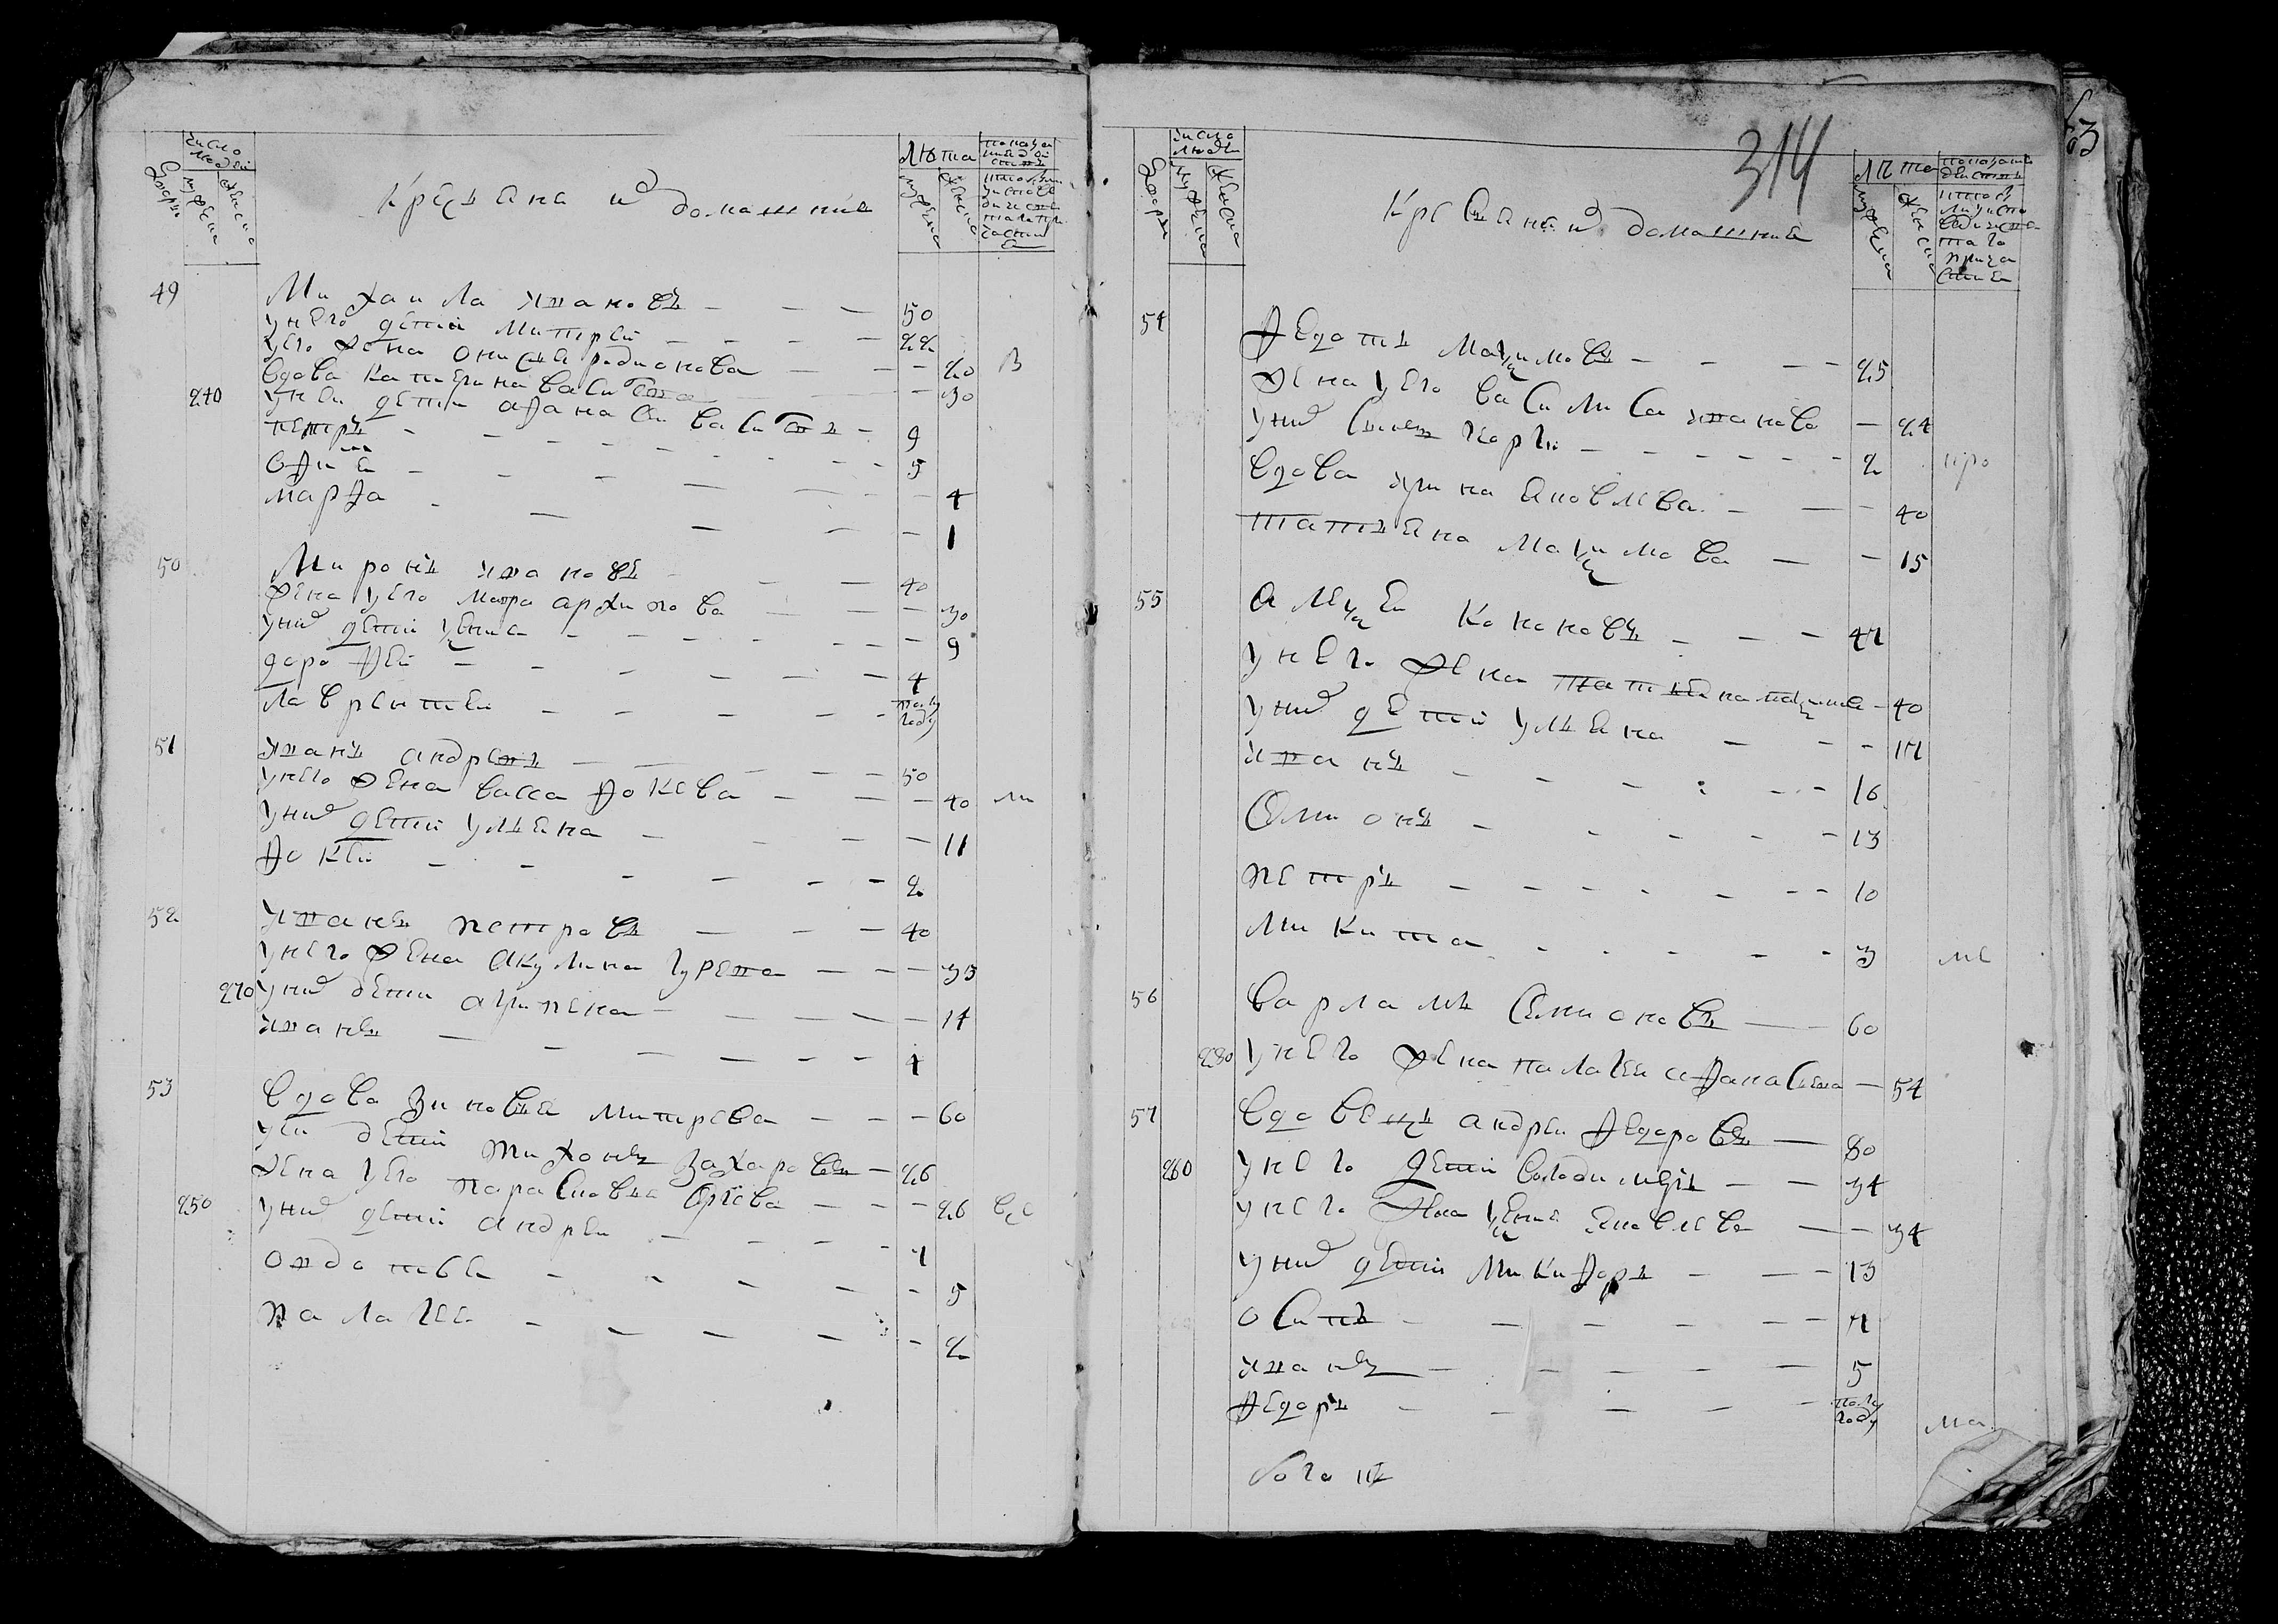 число людей
Дворы
мужеска
женска
Крестьяне и домашние
Лѣта
мужеска
женска
49 Михаила Иванов – – – 50
у него дети Митрей – – – – 22
у его жена Онисья Родионова – – – 20 В
вдова Катерина Васильева – 30
240 у неи дети Афанасеи Васильев – 9
Петръ – – – – – – – 5
София – – – – – – 4
Марфа – – – – – 1
50 Миронъ Иванов – – – 40
жена у его Мавра Архипова – – – 30
у них дети Ксения – – – – – – – 9
Дорофей – – – – – – 4
Лаврентеи – – – – – полу году
51 Иванъ Андреев – – – – – 50
у него жена Васса Фокеева – – – 40 ли
у них дети Ульяна – – – – 11
Фокей – – – – – – 2
52 Иванъ Петровъ – – – 40
у него жена Акулина Гурева – – – 35
270 у них дети Агрипена – – – – – 14
Иванъ – – – – – – 4
53 вдова Зиновья Митрева – – – 60
у еи дети Тихонъ Захаровъ – 26
жена у его Парасковья Сргева – – – 26 все
250 у них дети Андреи – – – – 7
Овдотья – – – – – 5
Палагея – – – – – – 2
314
63
число людеи
Дворы
мужеска
женска
Крестьяне и домашние
Лѣта
мужеска
женска
54 Федотъ Максимовъ – – – – 25
жена у его Василиса Иванова – 24
у них сынъ Карпъ – – – – – – 2 про
вдова Ирина Яковлева – – – 40
Татьяна Максимова – – 15
55 Алексеи Кононовъ – – – 47
у него жена Татьяна Максимова – 40
у них дети Ульяна – – – 17
Иванъ – – – – – 16
Семионъ – – – – – 13
Петръ – – – – – – – 10
Микита – – – – – 3 ме
56 Варламъ Семионовъ – – 60
280 у него жена Палагея Афанасева – 54
57 вдовецъ Андреи Федоровъ – 80
260 у него дети Володимеръ – – 34
у него жена Ксения Яковлева – – 34
у них дети Микифоръ – – – 13
Осипъ – – – – – – 7
Иванъ – – – – – 5
Федоръ – – – – – полу году ма
бога